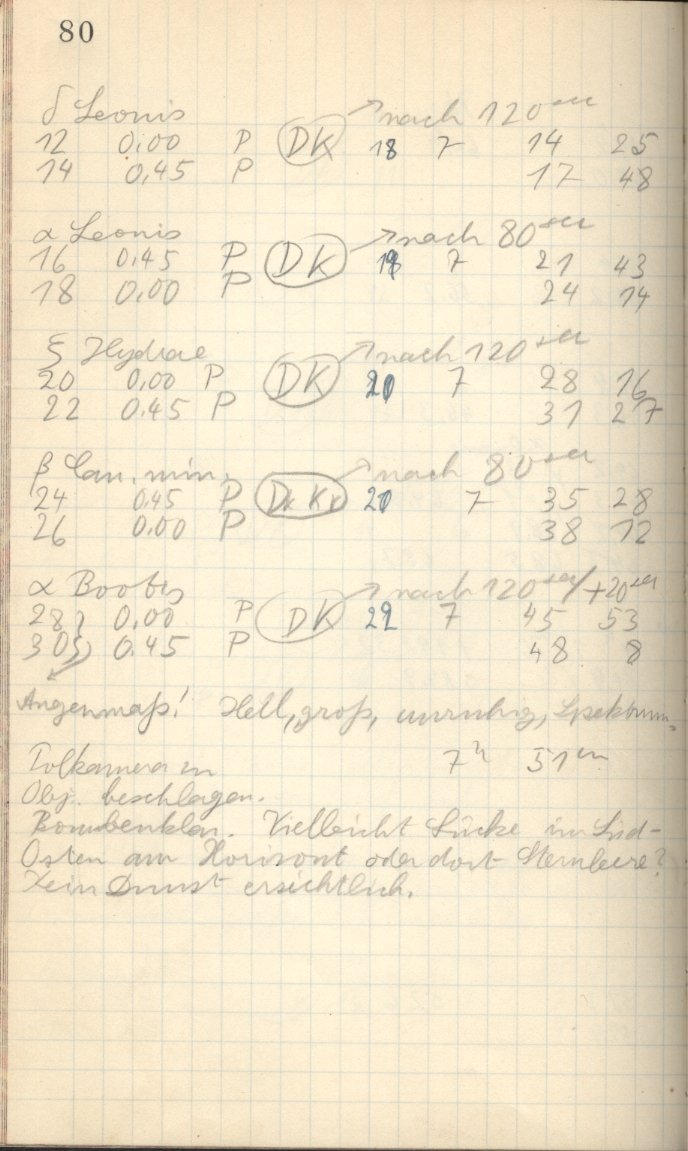 80
δ Leonis ↗nach 120 sec
12 0,00 P DK 18 7 14 25
14 0,45 P 17 48
α Leonis ↗nach 80 sec
16 0,45 P DK 19 7 21 43
18 0,00 P 24 14
ξ Hydrae ↗nach 120 sec
20 0,00 P DK 20 7 28 16
22 0,45 P 31 27
β Can. min. ↗nach 80 sec
24 0,45 P 7 35 28
26 0,00 P 38 12
α Bootis ↗nach 120 sec/+20 sec
28 0,00 P DK 22 7 45 53
30 0,45 P 48 8
Augenmaß! Hell, groß, unruhig, Spektrum.
Polkamera zu 7h 51m
Obj. beschlagen.
Bombenklar. Vielleicht Lücke im Süd-
Osten am Horizont oder dort Sternleere?
Kein Dunst ersichtlich.